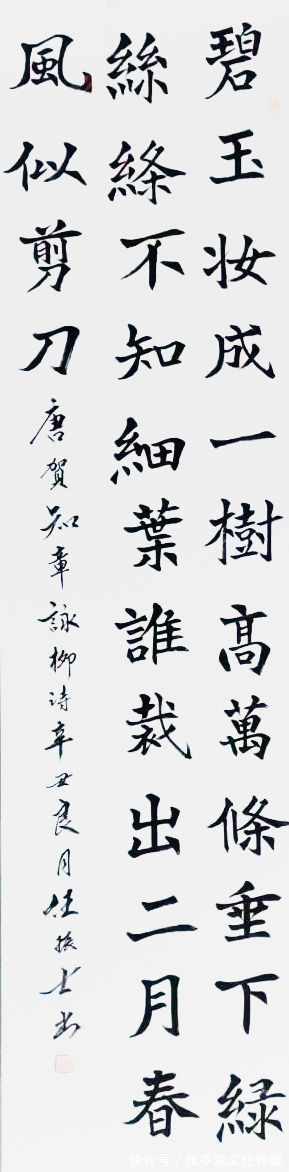 碧玉妆成一樹高萬條垂下綠
絲絛不知細葉誰裁出二月春
風似剪刀
唐賀知章詠柳诗辛丑良月任振士书
快传号 / 雅亭斋文化传媒